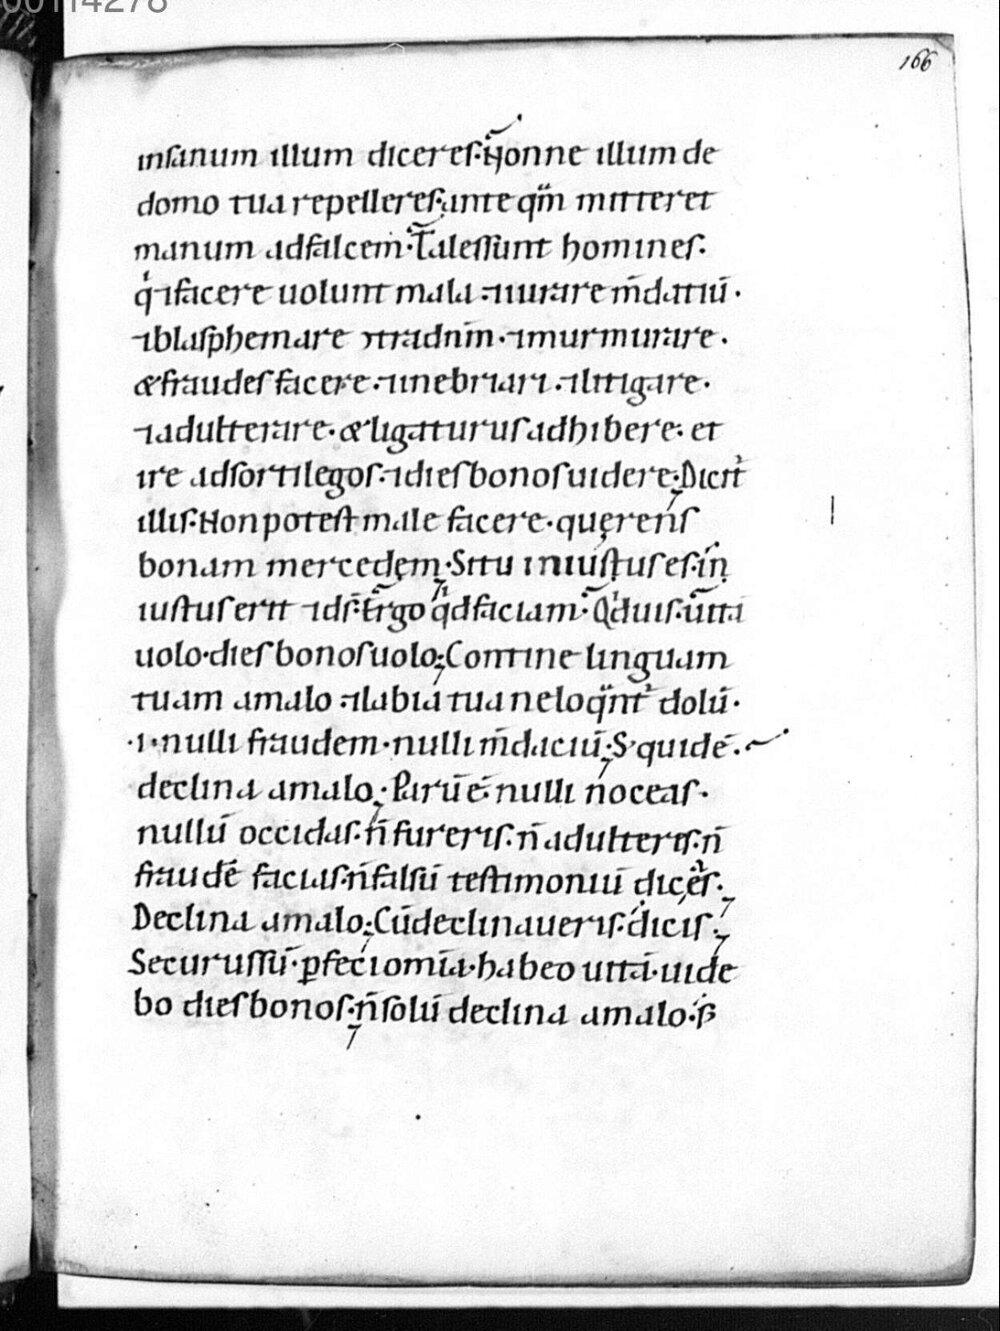 00114278
166
insanum illum diceres· Nonne illum de
domo tua repelleres· ante qm̄ mitteret
manum adfalcem· Tales sunt homines·
qͥ ⁊facere uolunt mala· ⁊iurare m̄datiū·
⁊blasphemare ↄtradnm̄· ⁊murmurare·
& fraudes facere· ⁊inebriari· ⁊litigare·
⁊adulterare· & ligaturus adhibere· et
ire adsortilegos· ⁊dies bonos uidere; Dicit᷑
illis· Non potest male facere· quęrens
bonam mercedem· Si tu iniustus es· in
iustus erit ⁊ds̄· Ergo qͥd faciam· Qͥd uis· uitā
uolo· dies bonos uolo; Contine linguam
tuam amalo· ⁊labia tua neloqn̄t᷑ dolū·
·i· nulli fraudem· nulli m̄daciū; S; quidē·
declina amalo; Parū ē· nulli noceas·
nullū occidas· n̄ fureris· n̄ adulteris· n̄
fraudē facias· n̄ falsū testimoniū diceˢ·
Declina amalo; Cū declinaueris· dicis;
Securus sū· ꝑfeci omīa· habeo uitā· uide
bo dies bonos· n̄ solū declina amalo· s;